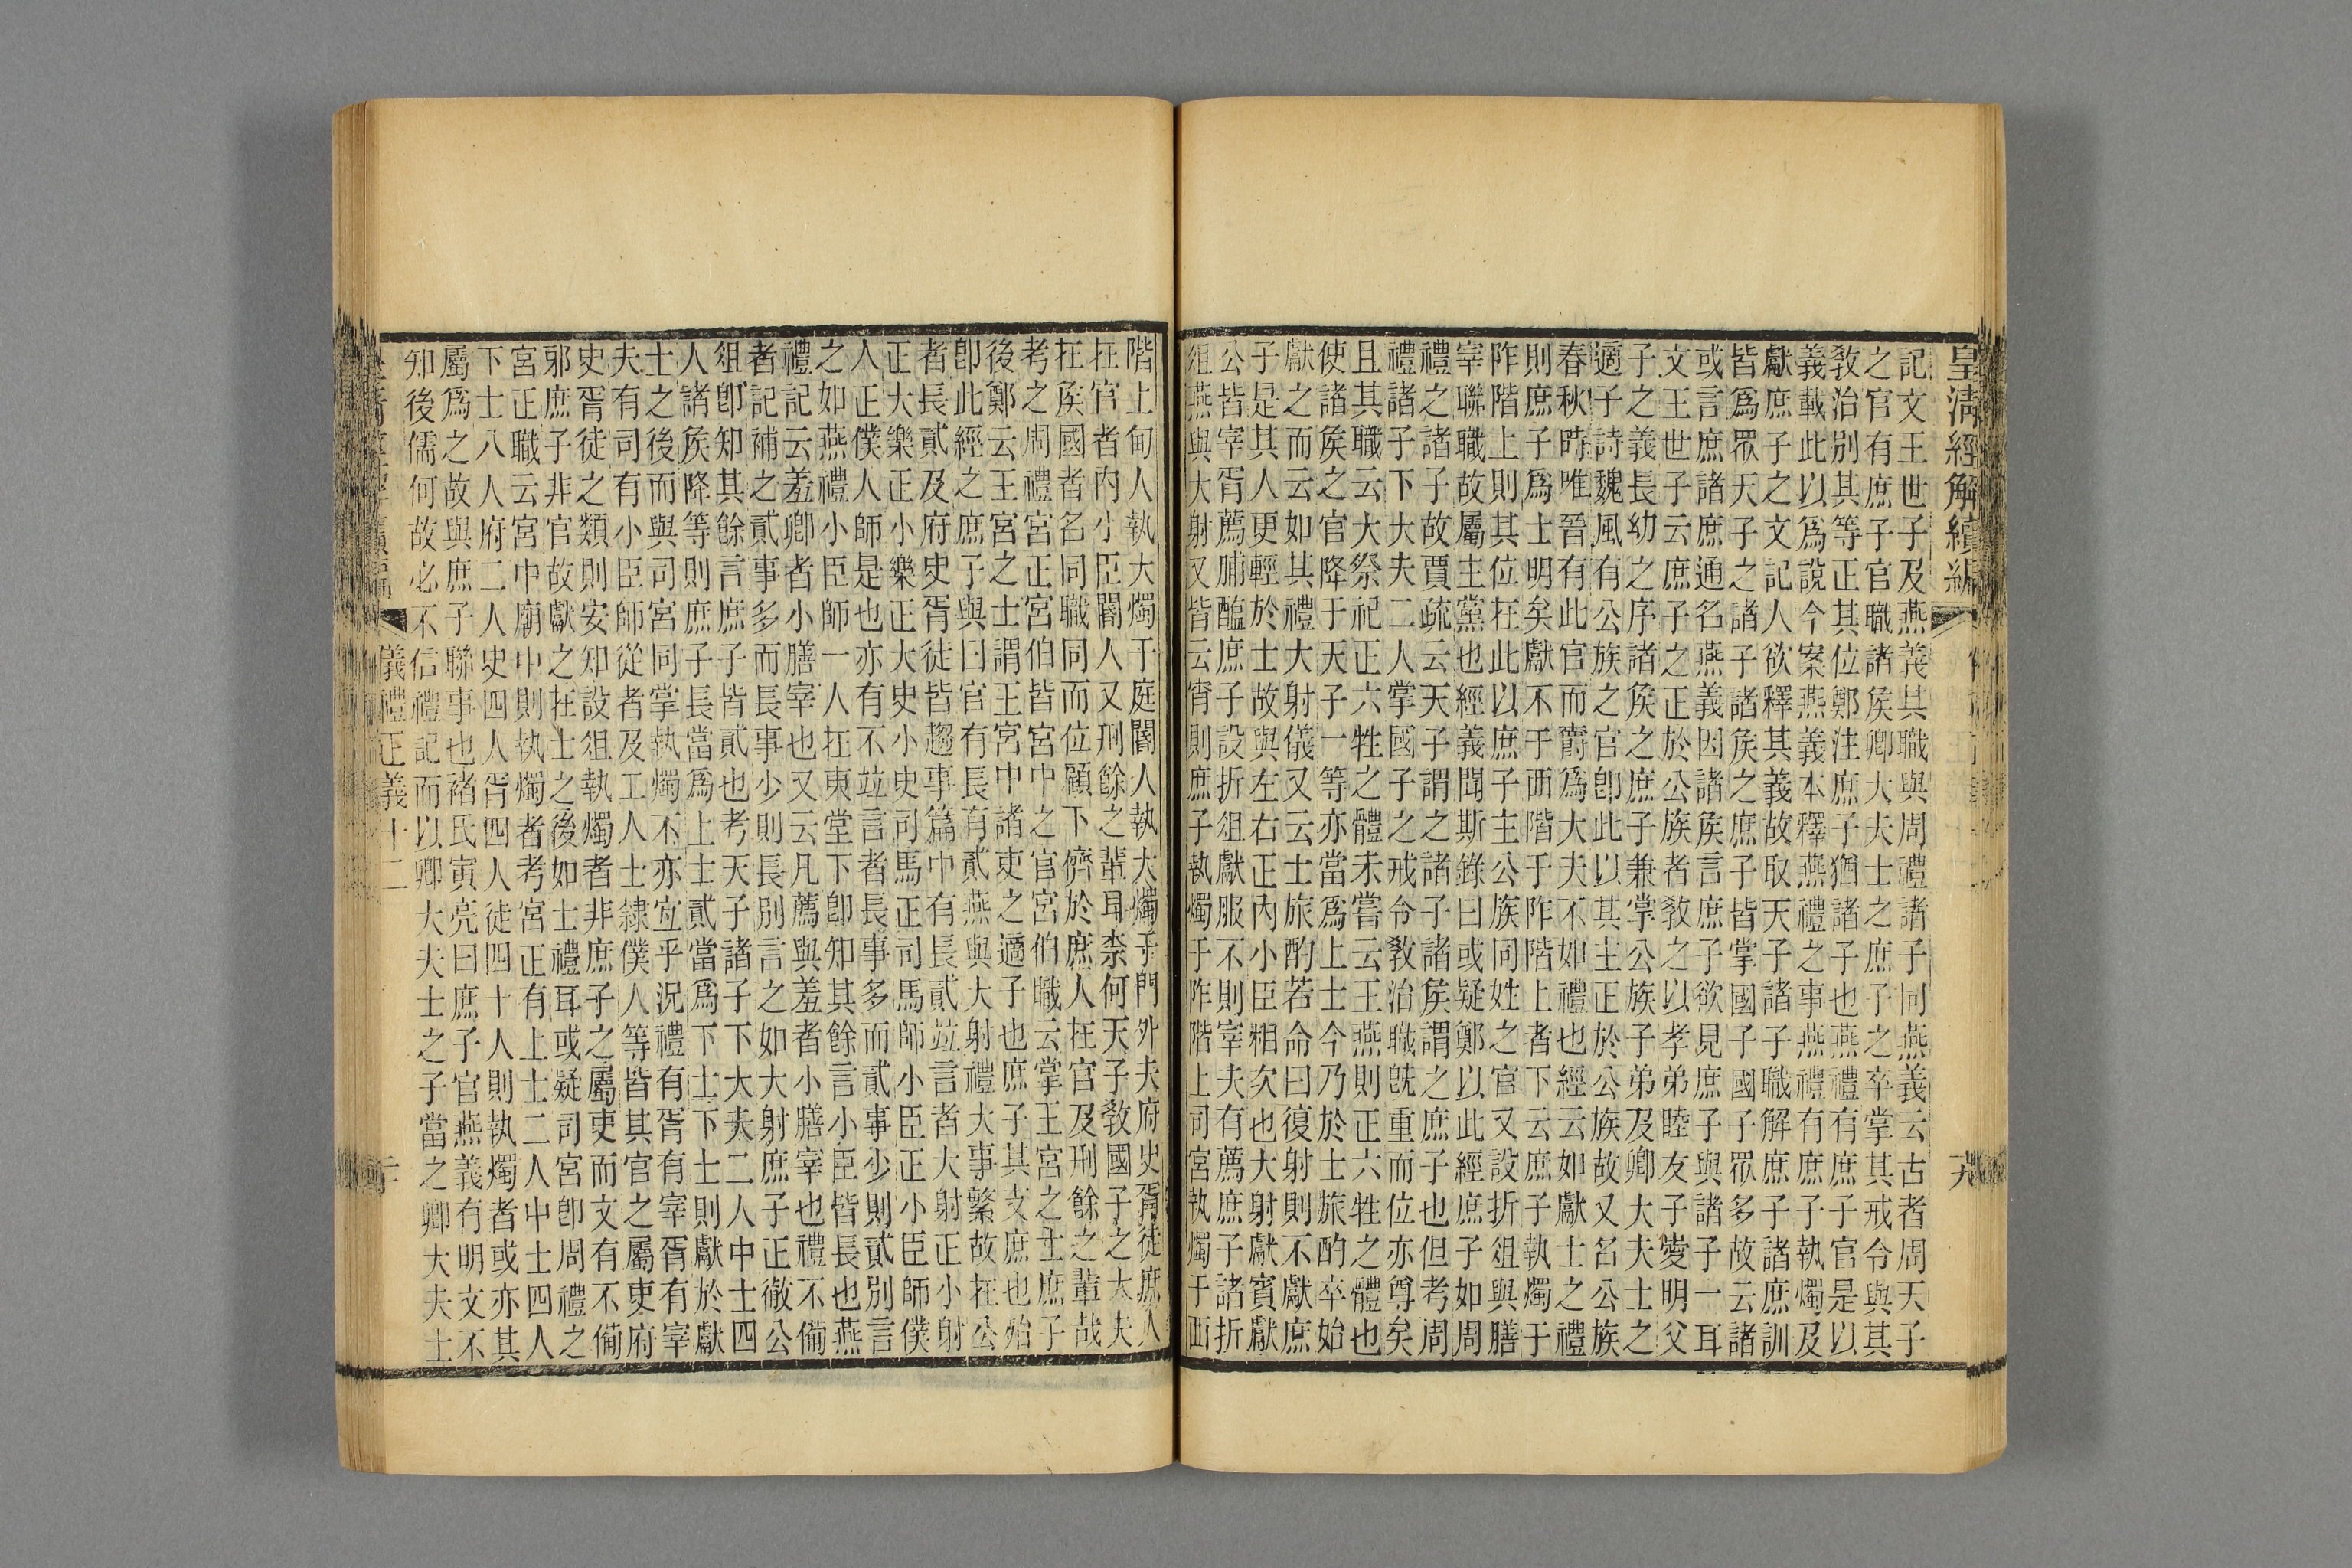 皇淸經解續編
記文王世子及燕義其職與周禮諸子同燕義云古者周天子
之官有庶子官職諸矦卿大夫士之庶子之卒掌其戒令與其
敎治別其等正其位鄭注庶子猶諸子也燕禮有庶子官是以
義載此以爲說今案燕義本釋燕禮之事燕禮有庶子執燭及
獻庶子之文記人欲釋其義故取天子諸子職解庶子諸庶訓
皆爲眾天子之諸子諸矦之庶子皆掌國子國子眾多故云諸
或言庶諸庶通名燕義因諸矦言庶子欲見庶子與諸子一耳
文王世子云庶子之正於公族者敎之以孝弟睦友子愛明父
子之義長幼之序諸矦之庶子兼掌公族子弟及卿大夫士之
適子詩魏風有公族之官卽此以其主正於公族故又名公族
春秋時唯晉有此官而爵爲大夫不如禮也經云如獻士之禮
則庶子爲士明矣獻不于西階于阼階上者下云庶子執燭于
阼階上則其位在此以庶子主公族同姓之官又設折俎與膳
宰聯職故屬主黨也經義聞斯錄曰或疑鄭以此經庶子如周
禮之諸子故賈疏云天子謂之諸子諸矦謂之庶子也但考周
禮諸子下大夫二人掌國子之戒令敎治職旣重而位亦尊矣
且其職云大祭祀正六牲之體未嘗云王燕則正六牲之體也
使諸矦之官降于天子一等亦當爲上士今乃於士旅酌卒始
獻之而云如其禮大射儀又云士旅酌若命曰復射則不獻庶
子是其人更輕於士故與左右正內小臣相次也大射獻賓獻
公皆宰胥薦脯醢庶子設折俎獻服不則宰夫有薦庶子諸折
俎燕與大射又皆云宵則庶子執燭于阼階上司宮執燭于西
階上甸人執大燭于庭閽人執大燭于門外夫府史胥徒庶人
在官者內小臣閽人又刑餘之輩耳柰何天子敎國子之大夫
在矦國者名同職同而位顧下儕於庶人在官及刑餘之輩哉
考之周禮宮正宮伯皆宮中之官宮伯職云掌王宮之士庶子
後鄭云王宮之士謂王宮中諸吏之適子也庶子其支庶也殆
卽此經之庶子與曰官有長有貳燕與大射禮大事繁故在公
者長貳及府史胥徒皆趨事篇中有長貳竝言者大射正小射
正大樂正小樂正大史小史司馬正司馬師小臣正小臣師僕
人正僕人師是也亦有不竝言者長事多而貳事少則貳別言
之如燕禮小臣師一人在東堂下卽知其餘言小臣皆長也燕
禮記云羞卿者小膳宰也又云凡薦與羞者小膳宰也禮不備
者記補之貳事多而長事少則長別言之如大射庶子正徹公
俎卽知其餘言庶子皆貳也考天子諸子下大夫二人中士四
人諸矦降等則庶子長當爲上士貳當爲下士下士則獻於獻
士之後而與司宮同掌執燭不亦宜乎況禮有胥有宰胥有宰
夫有司有小臣師從者及工人士隸僕人等皆其官之屬吏府
史胥徒之類則安知設俎執燭者非庶子之屬吏而文有不備
邪庶子非官故獻之在士之後如士禮耳或疑司宮卽周禮之
宮正職云宮中廟中則執燭者考宮正有上士二人中士四人
下士八人府二人史四人胥四人徒四十人則執燭者或亦其
屬爲之故與庶子聯事也褚氏寅亮曰庶子官燕義有明文不
知後儒何故必不信禮記而以卿大夫士之子當之卿大夫士
儀禮正義十二